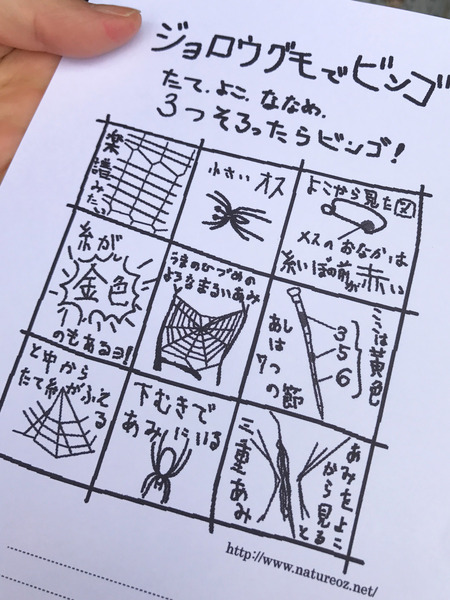 ジョロウグモでビンゴ
たて.よこ.ななめ.
3つそろったらビンゴ!
楽譜みたい
小さいオス
よこから見た図
メスのおなかは
糸いぼの前が赤い
糸が
金色
のもあるヨ!
うまのひづめの
ようなまるいあみ
あしは7つの節
3
5
6
ここは黄色
と中から
たて糸がふえる
下むきで
あみにいる
三重あみ
あみをよこから見ると
http://www.natureoz.net/